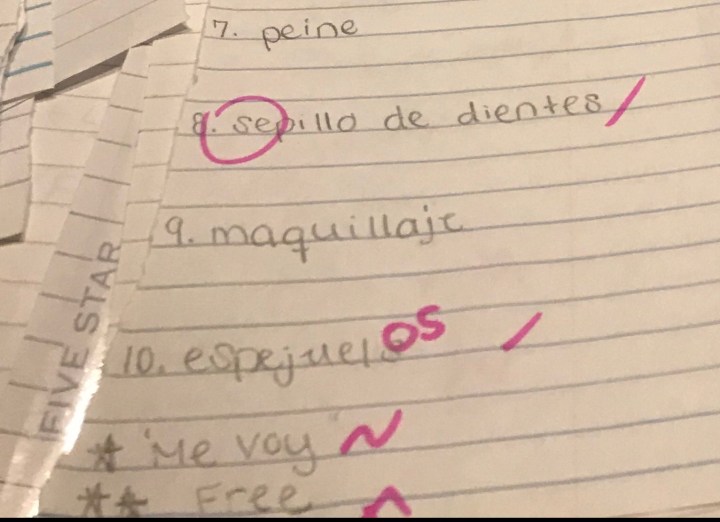 7. peine
8. sepillo de dientes /
9. maquillaje
10. espejuelos /
* Me voy ~
** Free ^
FIVE STAR